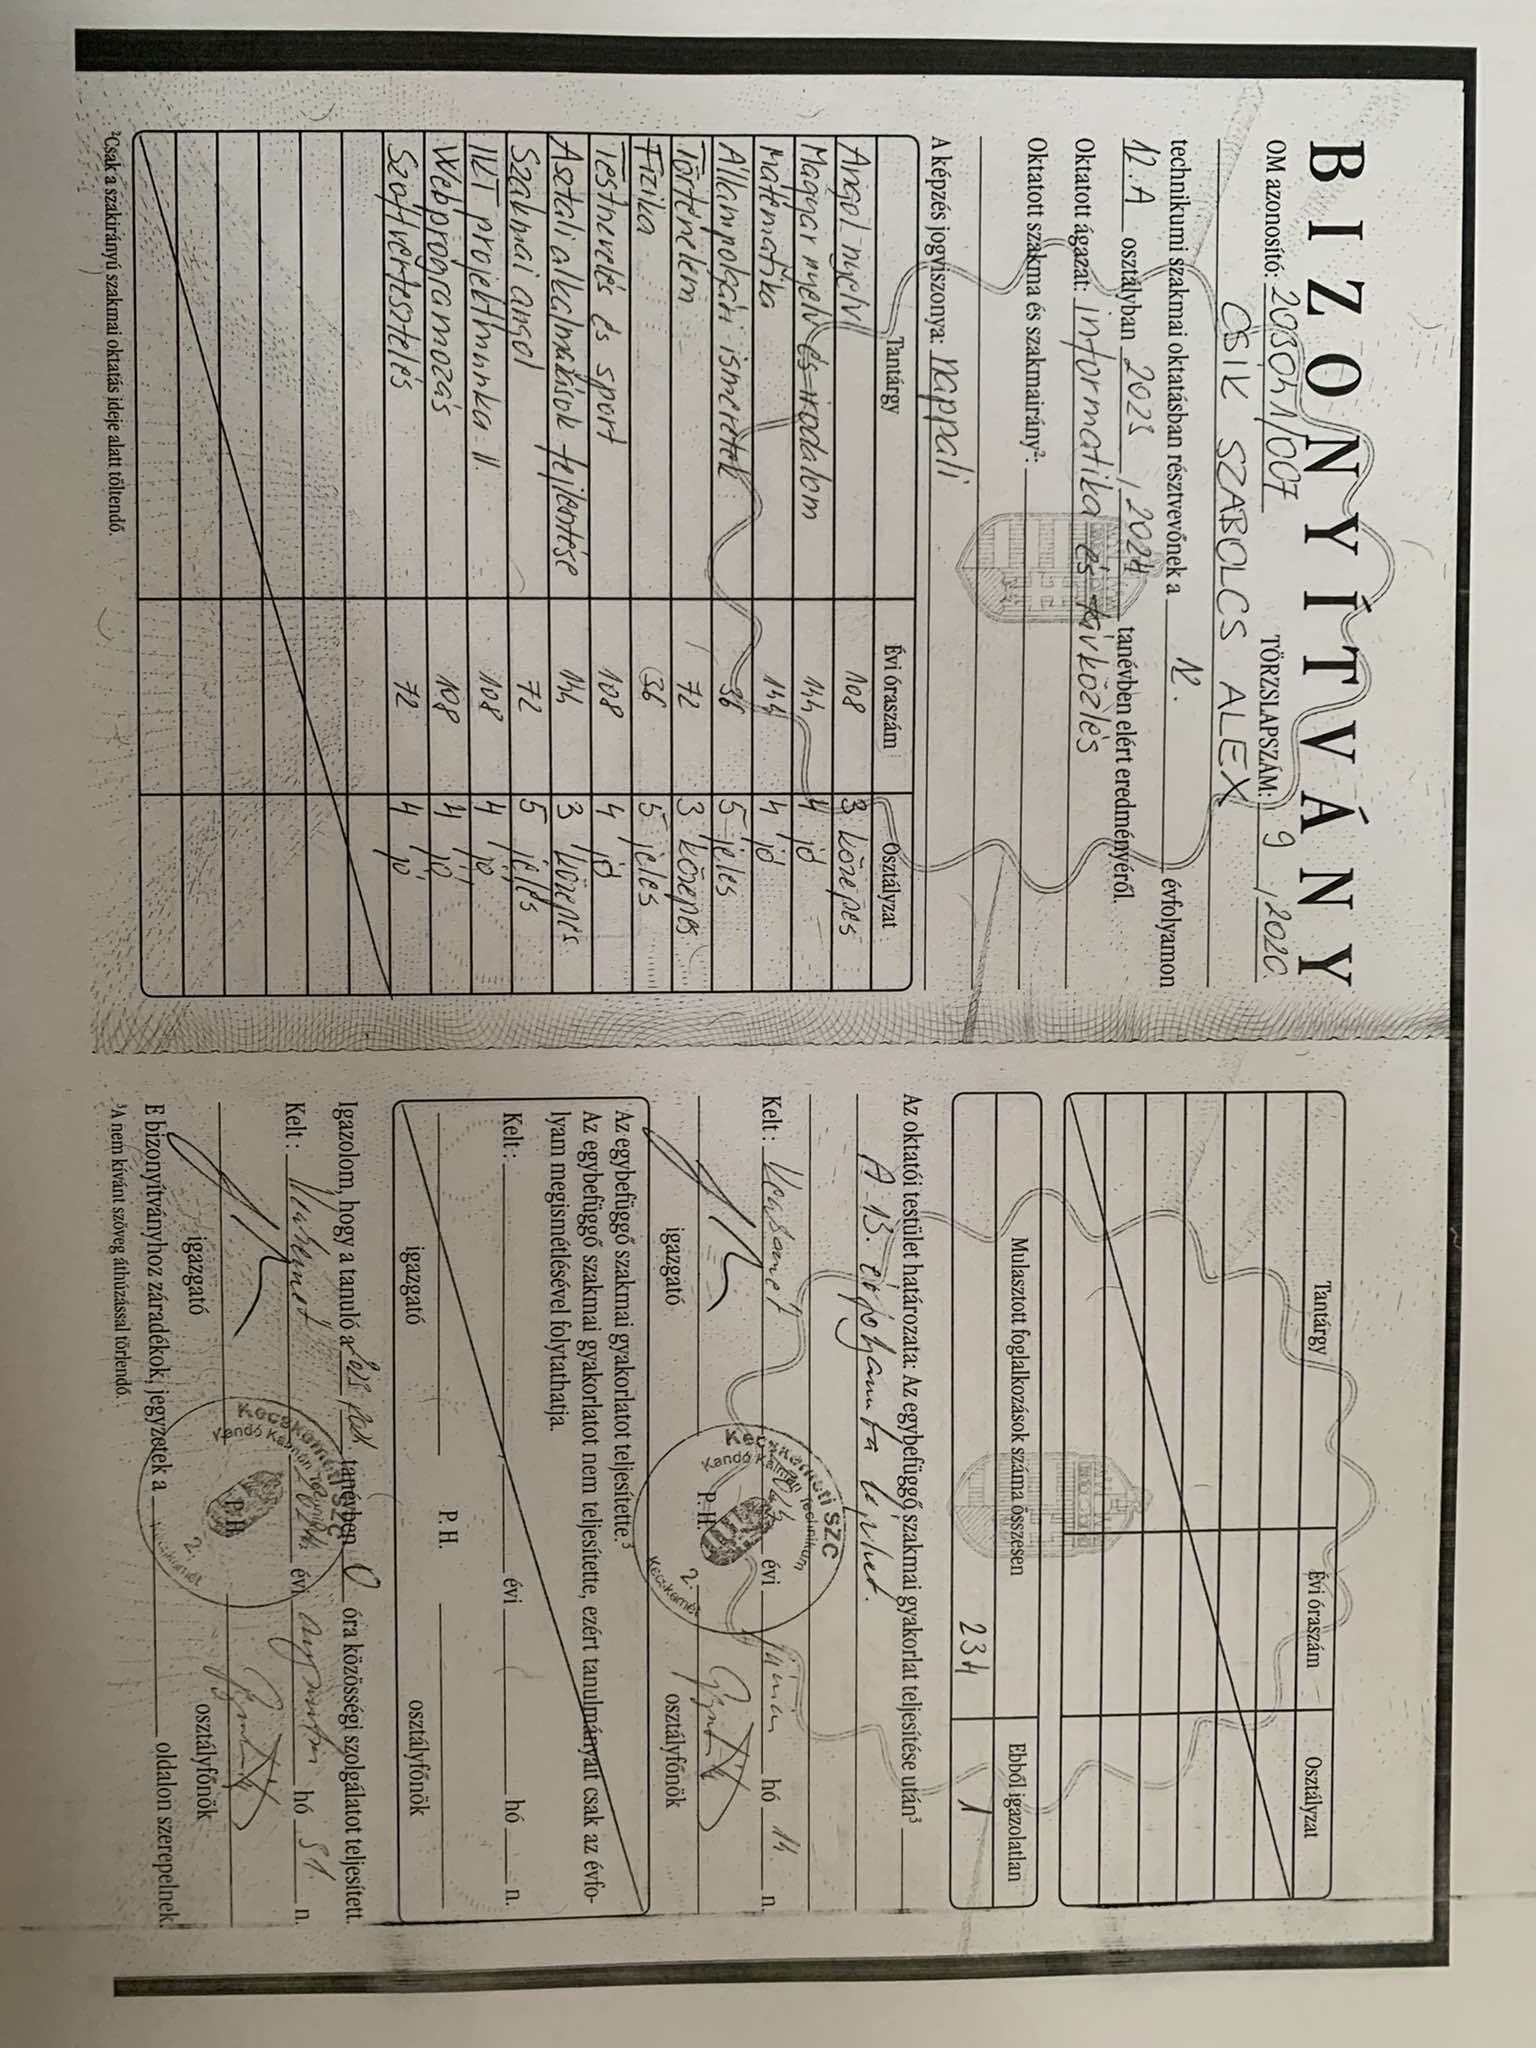 BIZONYÍTVÁNY
OM azonosító: 203041/007 TÖRZSLAPSZÁM: 9 / 2020
CSIK SZABOLCS ALEX
technikumi szakmai oktatásban résztvevőnek a 12. évfolyamon
12.A osztályban 2023 / 2024 tanévben elért eredményéről.
Oktatott ágazat: informatika és távközlés
Oktatott szakma és szakmairány²:
A képzés jogviszonya: nappali
Tantárgy Évi óraszám Osztályzat
Angol nyelv 108 3 közepes
Magyar nyelv és irodalom 144 4 jó
Matematika 144 4 jó
Állampolgári ismeretek 36 5 jeles
Történelem 72 3 közepes
Fizika 36 5 jeles
Testnevelés és sport 108 4 jó
Asztali alkalmazások fejlesztése 144 3 közepes
Szakmai angol 72 5 jeles
IKT projektmunka II 108 4 jó
Webprogramozás 108 4 jó
Szoftvertesztelés 72 4 jó
²Csak a szakirányú szakmai oktatás ideje alatt töltendő.
Tantárgy Évi óraszám Osztályzat
Mulasztott foglalkozások száma összesen Ebből igazolatlan
234 1
Az oktatói testület határozata: Az egybefüggő szakmai gyakorlat teljesítése után³
A 13. évfolyamba léphet.
Kelt: Kecskemét 2024 évi június hó 14. n.
igazgató P.H. osztályfőnök
Kecskeméti SZC
Kandó Kálmán Technikum
2.
Kecskemét
Az egybefüggő szakmai gyakorlatot teljesítette.³
Az egybefüggő szakmai gyakorlatot nem teljesítette, ezért tanulmányait csak az évfo-
lyam megismétlésével folytathatja.
Kelt: , évi hó n.
igazgató P. H. osztályfőnök
Igazolom, hogy a tanuló a tanévben 0 óra közösségi szolgálatot teljesített.
Kelt: Kecskemét 2024 évi augusztus hó 31. n.
igazgató P.H. osztályfőnök
Kecskeméti SZC
Kandó Kálmán Technikum
2.
Kecskemét
E bizonyítványhoz záradékok, jegyzetek a oldalon szerepelnek.
³A nem kívánt szöveg áthúzással törlendő.